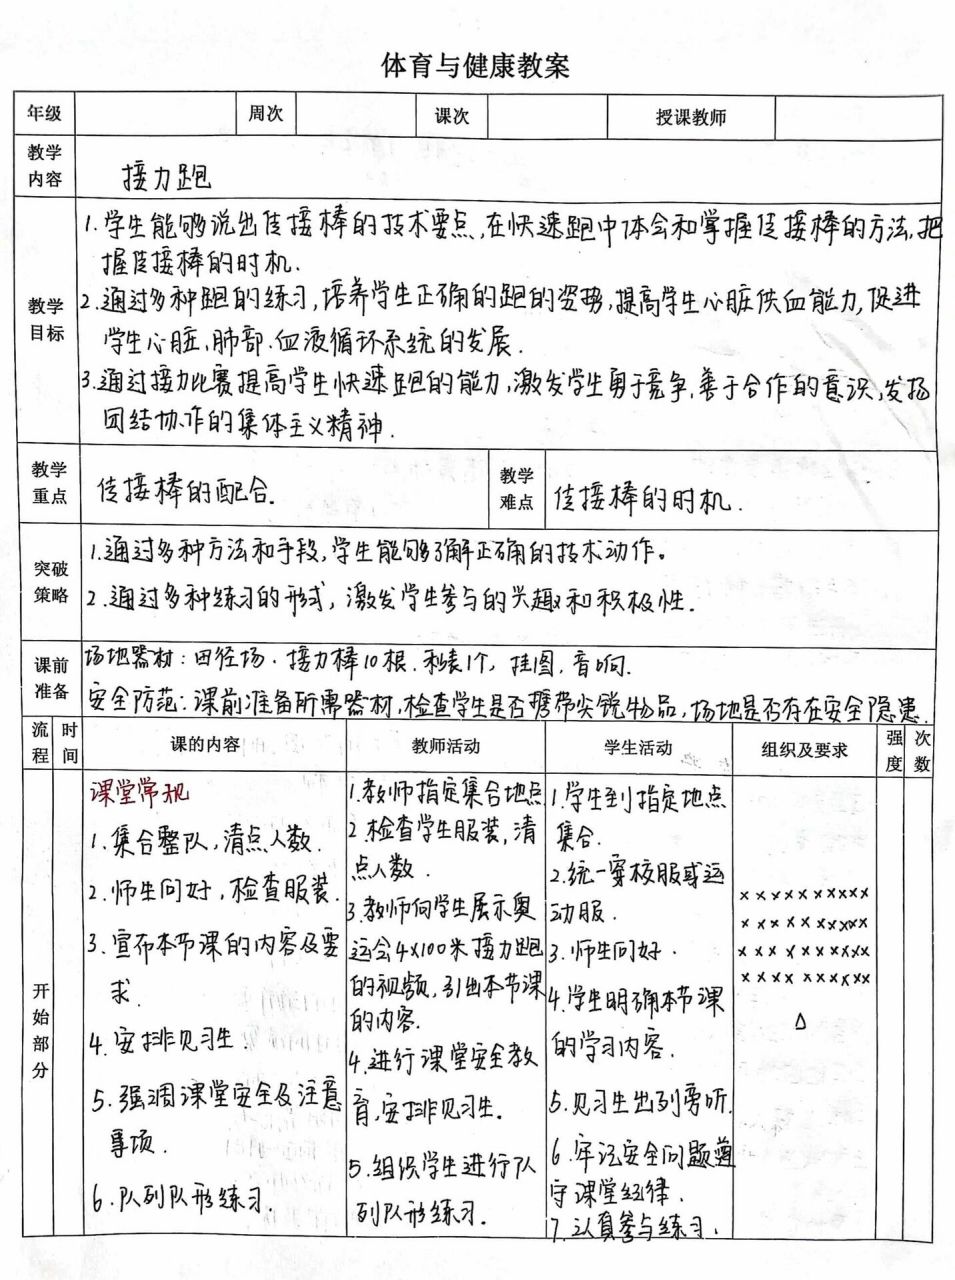 体育与健康教案
年级 周次 课次 授课教师
教学内容 接力跑
教学目标
1.学生能够说出传接棒的技术要点,在快速跑中体会和掌握传接棒的方法,把
握传接棒的时机.
2.通过多种跑的练习,培养学生正确的跑的姿势,提高学生心脏供血能力,促进
学生心脏、肺部、血液循环系统的发展.
3.通过接力比赛提高学生快速跑的能力,激发学生勇于竞争,善于合作的意识,发扬
团结协作的集体主义精神.
教学重点 传接棒的配合. 教学难点 传接棒的时机.
突破策略
1.通过多种方法和手段,学生能够了解正确的技术动作。
2.通过多种练习的形式,激发学生参与的兴趣和积极性.
课前准备
场地器材:田径场.接力棒10根.秒表1个,挂图,音响.
安全防范:课前准备所需器材,检查学生是否携带尖锐物品,场地是否存在安全隐患.
流程 时间 课的内容 教师活动 学生活动 组织及要求 强度 次数
开始部分
课堂常规
1.集合整队,清点人数.
2.师生问好,检查服装.
3.宣布本节课的内容及要
求.
4.安排见习生.
5.强调课堂安全及注意
事项.
6.队列队形练习.
1.教师指定集合地点
2.检查学生服装,清
点人数.
3.教师向学生展示奥
运会4x100米接力跑
的视频,引出本节课
的内容.
4.进行课堂安全教
育,安排见习生.
5.组织学生进行队
列队形练习.
1.学生到指定地点
集合.
2.统一穿校服或运
动服.
3.师生问好.
4.学生明确本节课
的学习内容.
5.见习生出列旁听.
6.牢记安全问题遵
守课堂纪律.
7.认真参与练习.
xxxxxxxxxx
xxxxxxxxxx
xxxxxxxxxx
xxxxxxxxxx
△